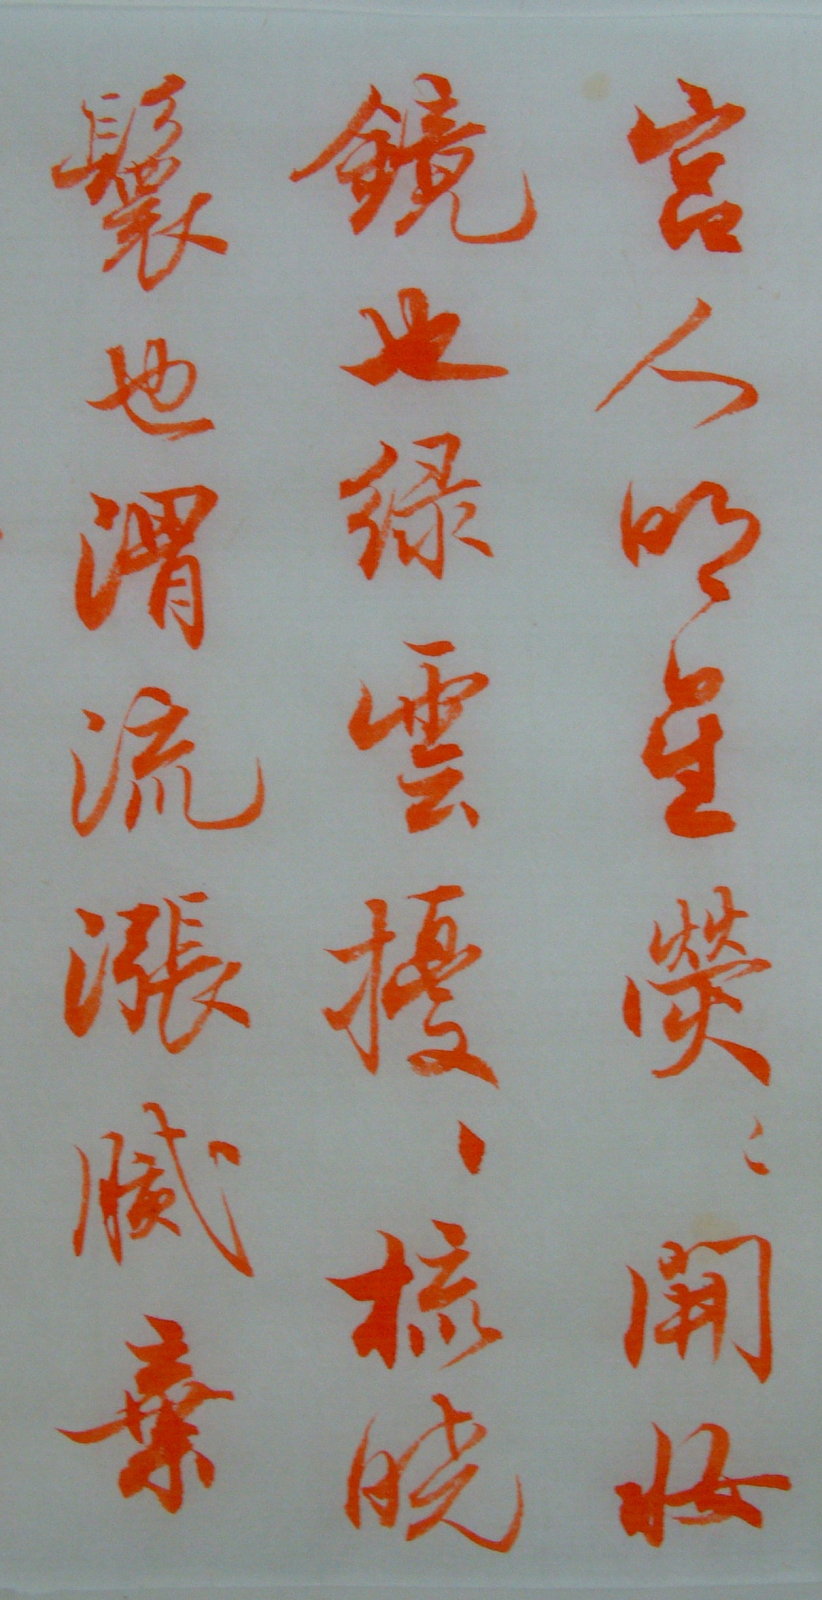 宮人明星熒〻開妝
鏡也綠雲擾〻梳曉
鬟也渭流漲膩棄